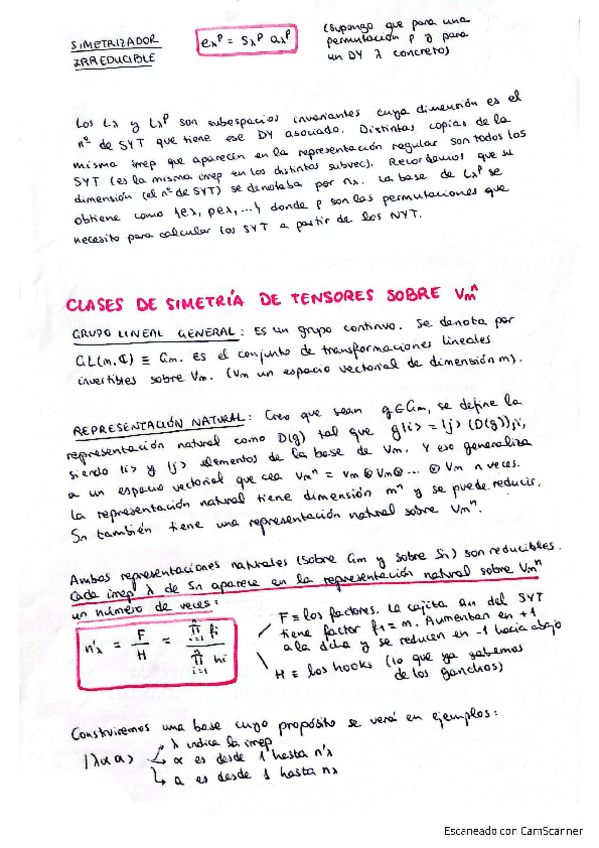 SIMETRIZADOR
IRREDUCIBLE
eλᵖ = sλᵖ aλᵖ
(supongo que para una
permutación p y para
un DY λ concreto)
Los Lλ y Lλᵖ son subespacios invariantes cuya dimensión es el
nº de SYT que tiene ese DY asociado. Distintas copias de la
misma irrep que aparecen en la representación regular son todos los
SYT (es la misma irrep en los distintos subvec). Recordamos que su
dimensión (el nº de SYT) se denotaba por nλ. La base de Lλᵖ se
obtiene como {eλ, peλ, ...} donde p son las permutaciones que
necesito para calcular los SYT a partir de los NYT.
CLASES DE SIMETRÍA DE TENSORES SOBRE Vmⁿ
GRUPO LINEAL GENERAL: Es un grupo continuo. Se denota por
GL(m,ℂ) ≡ Gm. es el conjunto de transformaciones lineales
invertibles sobre Vm. (Vm un espacio vectorial de dimensión m).
REPRESENTACIÓN NATURAL: Creo que sean g∈Gm, se define la
representación natural como D(g) tal que g|i> = |j> (D(g))ji,
siendo |i> y |j> elementos de la base de Vm. Y eso generaliza
a un espacio vectorial que sea Vmⁿ = Vm⊗Vm⊗... ⊗Vm n veces.
La representación natural tiene dimensión mⁿ y se puede reducir.
Sn también tiene una representación natural sobre Vmⁿ.
Ambas representaciones naturales (sobre Gm y sobre Sn) son reducibles.
Cada irrep λ de Sn aparece en la representación natural sobre Vmⁿ
un número de veces:
n'λ = F/H = ∏ⁿᵢ₌₁ fi / ∏ⁿᵢ₌₁ hi
F ≡ los factores. La cajita a11 del SYT
tiene factor f1 = m. Aumentan en +1
a la dcha y se reducen en -1 hacia abajo
H ≡ los hooks (lo que ya sabemos
de los ganchos)
Construiremos una base cuyo propósito se verá en ejemplos:
|λαa> λ indica la irrep
α es desde 1 hasta n'λ
a es desde 1 hasta nλ
Escaneado con CamScanner